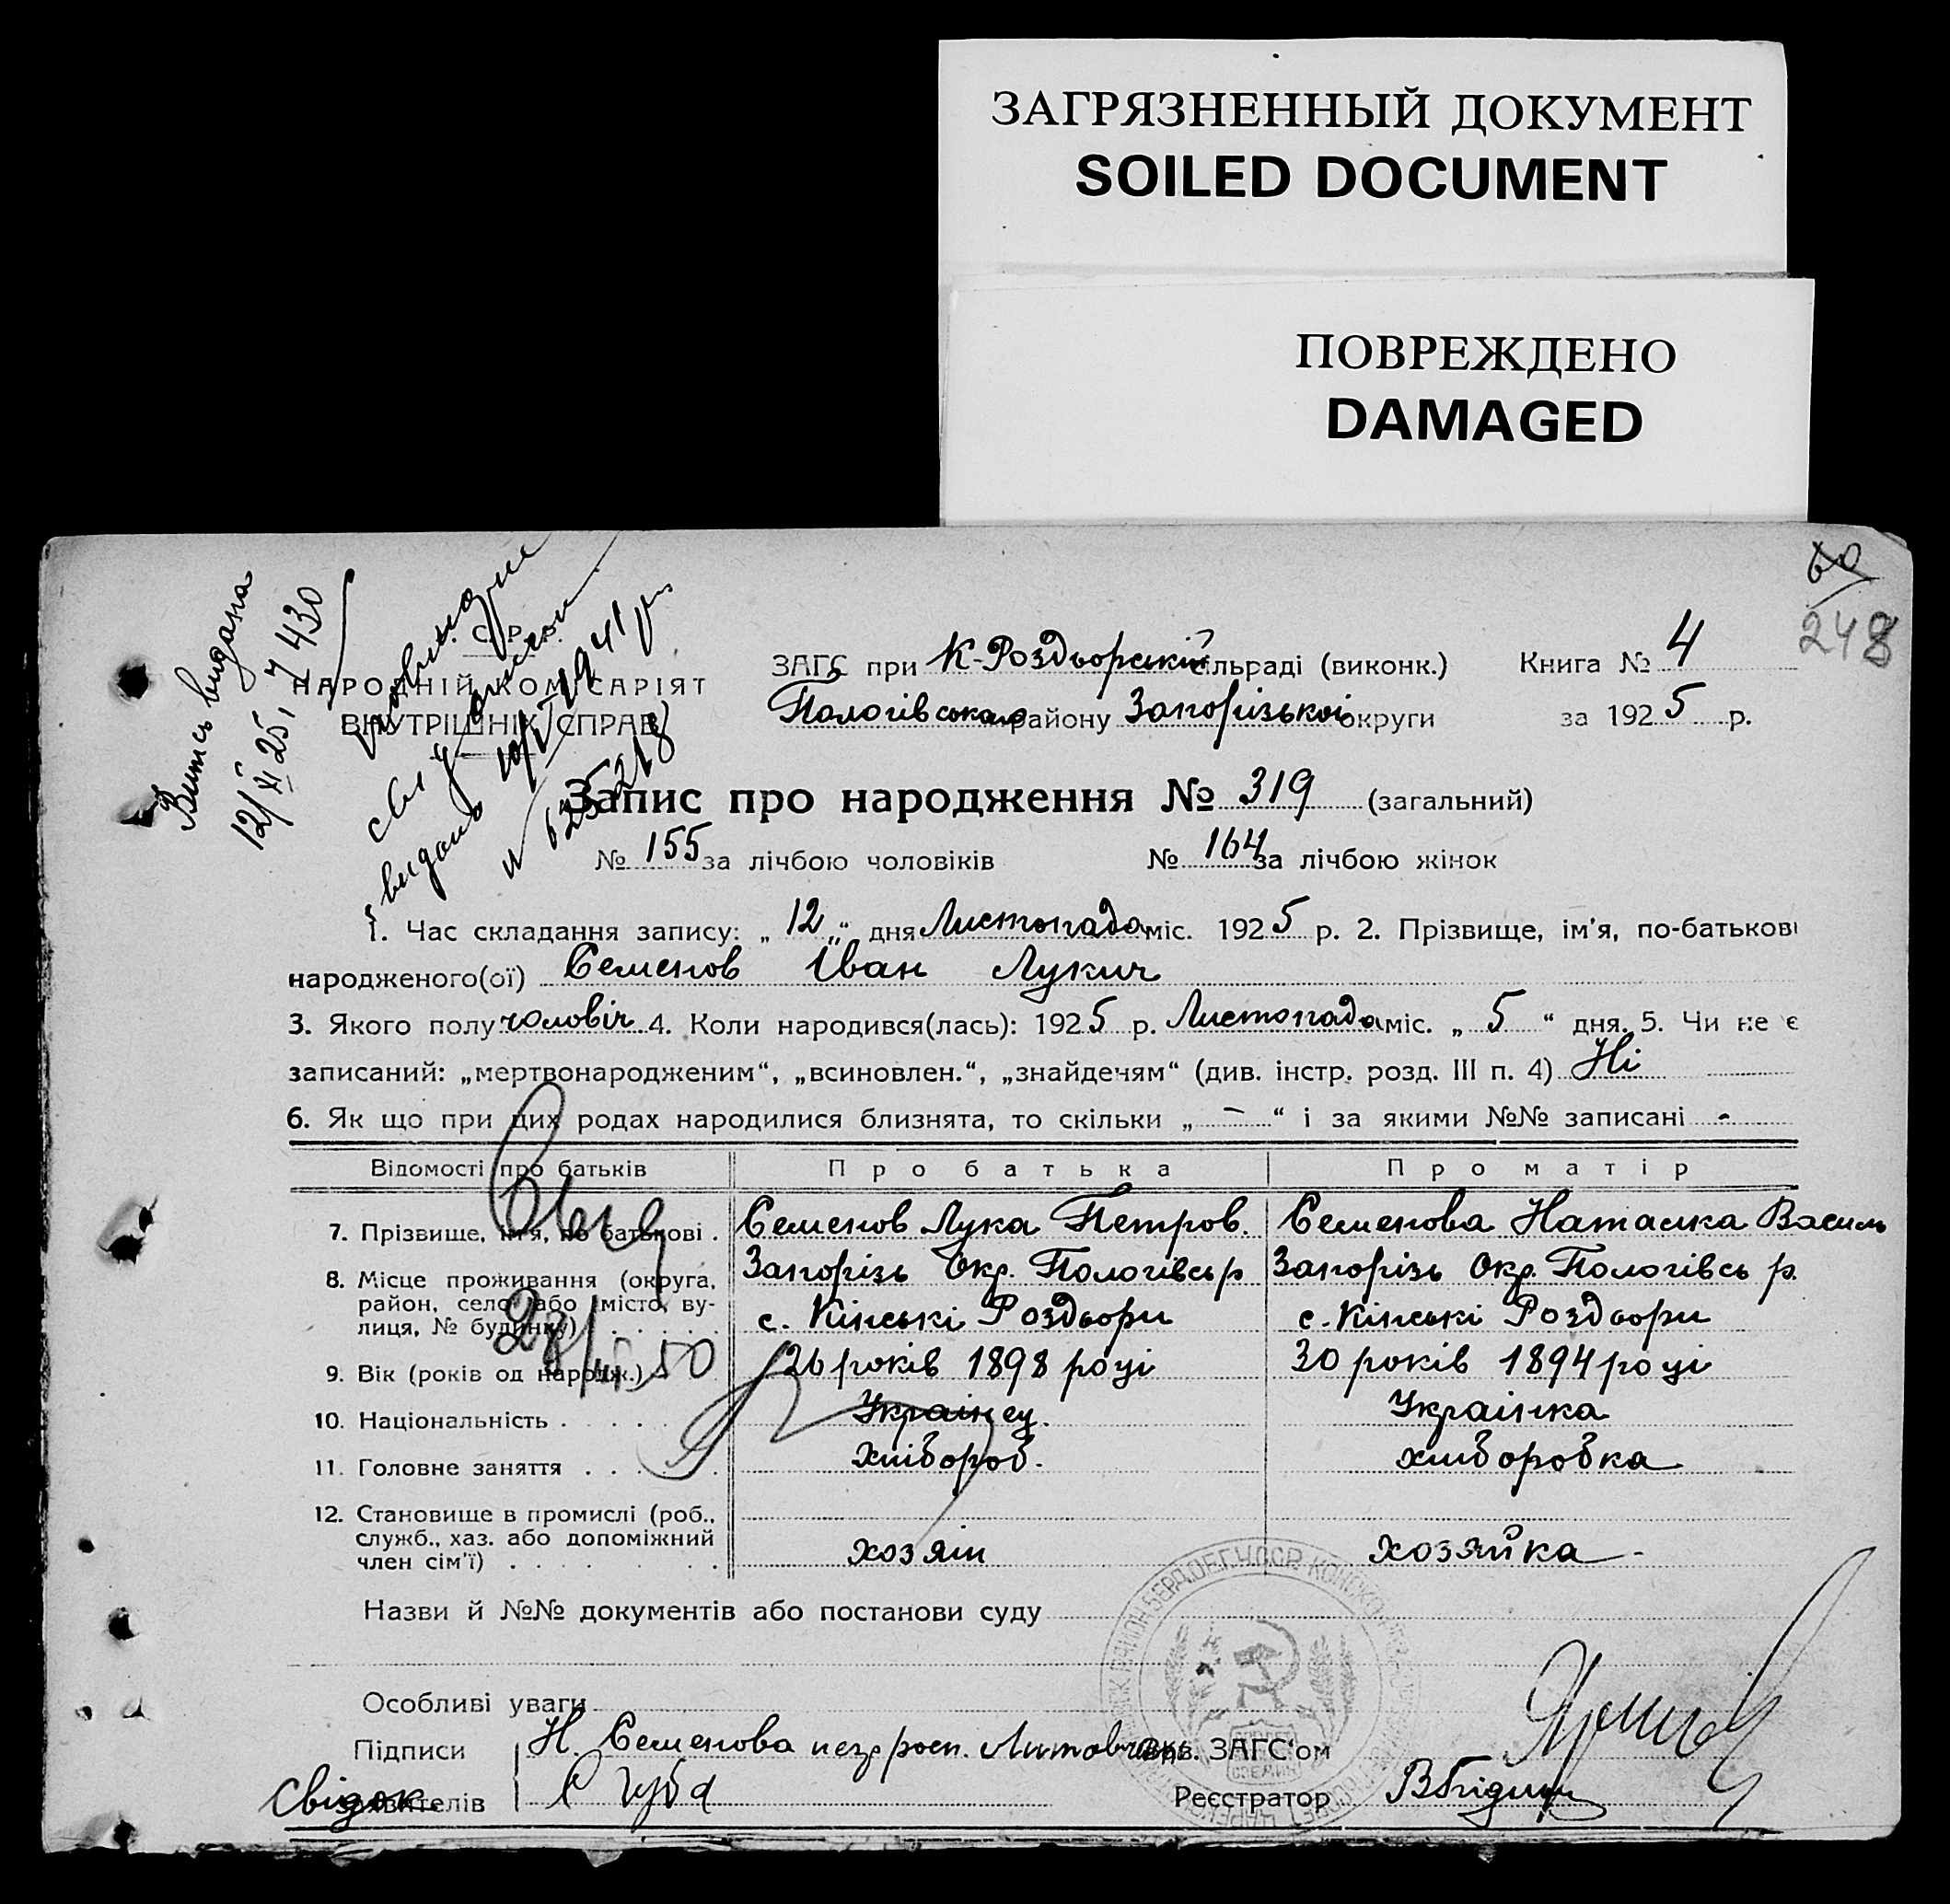 ЗАГРЯЗНЕННЫЙ ДОКУМЕНТ
SOILED DOCUMENT
ПОВРЕЖДЕНО
DAMAGED
60
248
Витсь видана
12/XI 25, 7430
видань 10/V 1941
N 625218
С.Р.Р.
НАРОДНІЙ КОМІСАРІЯТ
ВНУТРІШНІХ СПРАВ
ЗАГС при К-Роздворській сільраді (виконк.) Книга № 4
Пологівського району Запорізької округи за 1925 р.
Запис про народження № 319 (загальний)
№ 155 за лічбою чоловіків № 164 за лічбою жінок
1. Час складання запису: „ 12 “ дня Листопада міс. 1925 р. 2. Прізвище, ім'я, по-батькові
народженого(ої) Семенов Іван Лукич
3. Якого полу чоловіч 4. Коли народився(лась): 1925 р. Листопада міс. „ 5 “ дня. 5. Чи не є
записаний: „мертвонародженим“, „всиновлен.“, „знайденям“ (див. інстр. розд. III п. 4) Ні
6. Як що при цих родах народилися близнята, то скільки „ — “ і за якими №№ записані -
Відомості про батьків Про батька Про матір
7. Прізвище, ім'я, по батькові . Семенов Лука Петров. Семенова Наталка Василь
8. Місце проживання (округа, Запорізь Окр. Пологівсь р Запорізь Окр. Пологівсь р.
район, село або місто, ву- с. Кінські Роздори с. Кінські Роздори
лиця, № будинку) . . . . .
28/ 50
9. Вік (років од народж.) 26 років 1898 році 30 років 1894 році
10. Національність . . . . . Українец. Українка
11. Головне заняття . . . . . хлібороб. хліборобка
12. Становище в промислі (роб.,
служб., хаз. або допоміжний
член сім'ї) . . . . . хозяїн хозяйка -
Назви й №№ документів або постанови суду
Особливі уваги
Підписи Н. Семенова Зав. ЗАГС'ом
Свідок заявителів Губа Реєстратор